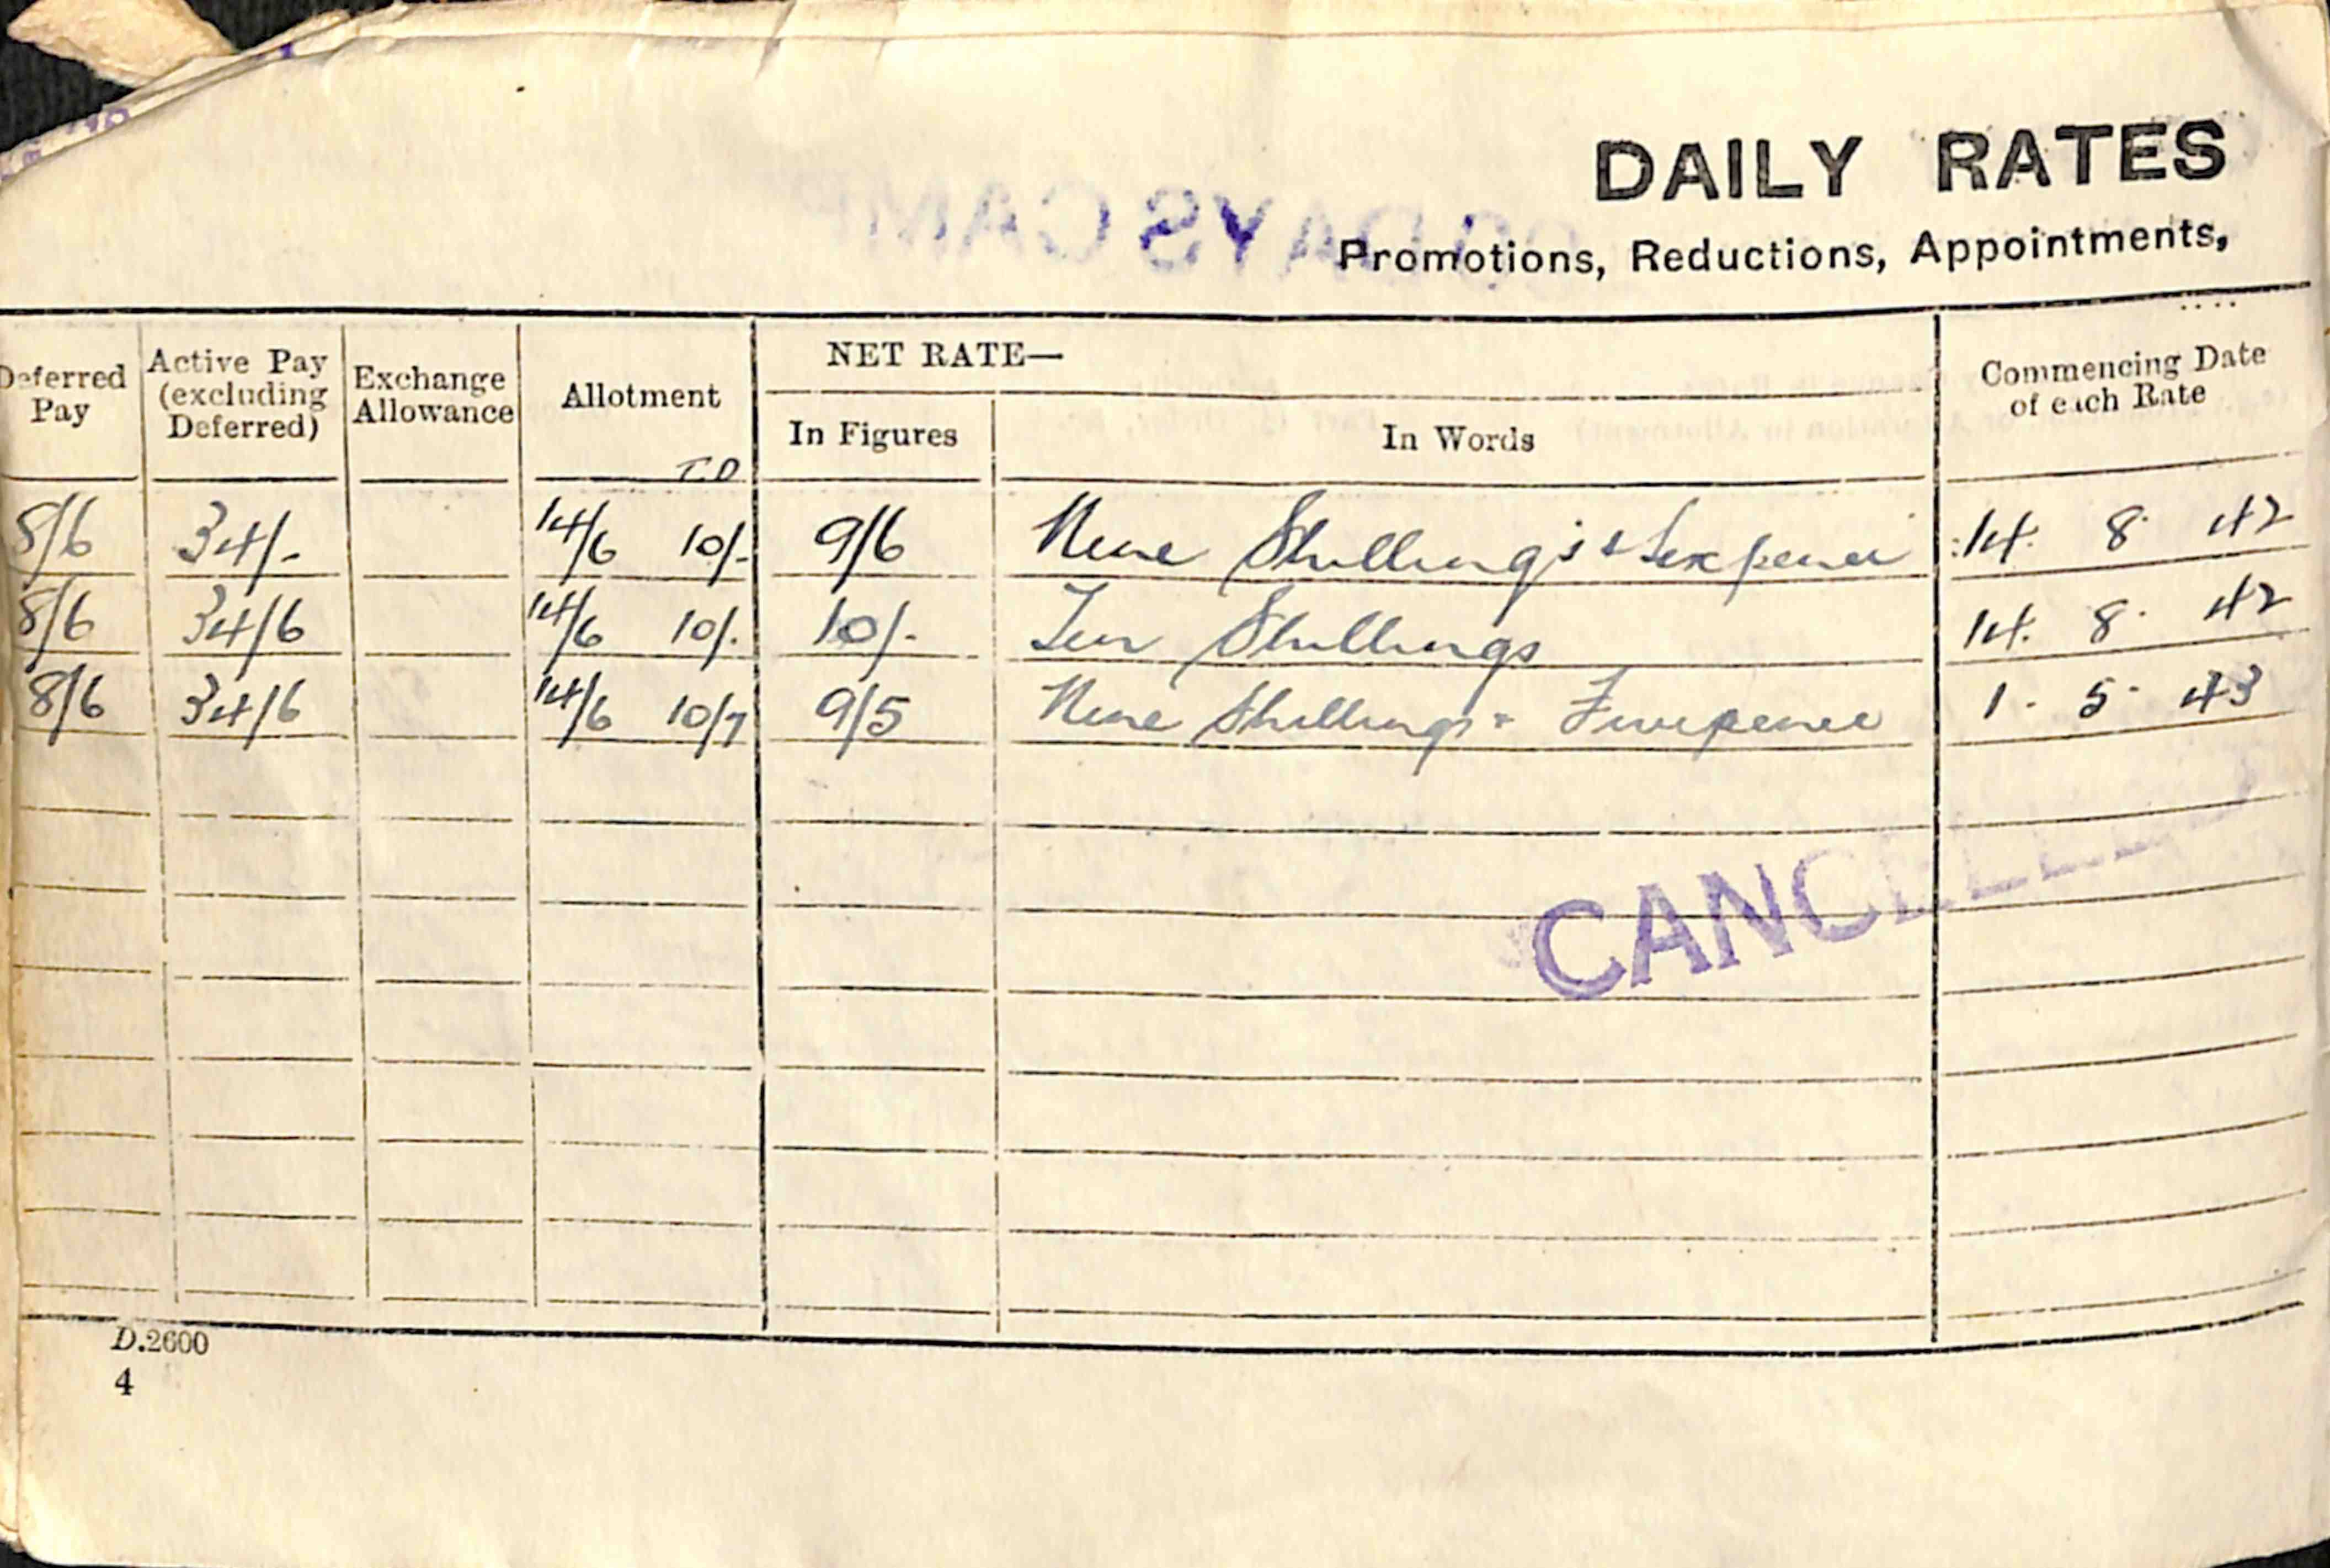 DAILY RATES
Promotions, Reductions, Appointments,
Deferred Pay
Active Pay (excluding Deferred)
Exchange Allowance
Allotment
T.D
NET RATE—
In Figures
In Words
Commencing Date of each Rate
8/6 34/- 14/6 10/- 9/6 Nine Shillings & Sixpence 14. 8. 42
8/6 34/6 14/6 10/- 10/- Ten Shillings 14. 8. 42
8/6 34/6 14/6 10/7 9/5 Nine Shillings & Fivepence 1. 5. 43
CANCELL
D.2600
4